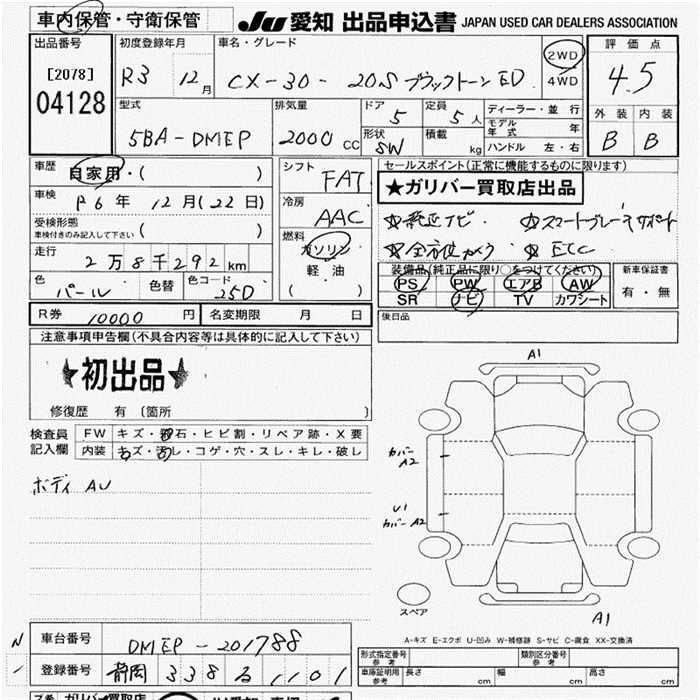 車内保管・守衛保管
JU 愛知 出品申込書 JAPAN USED CAR DEALERS ASSOCIATION
出品番号
[2078]
04128
初度登録年月
R3 12月
車名・グレード
CX-30- 20S ブラックトーンED
2WD
4WD
評価点
4.5
外装 内装
B B
型式
5BA-DMEP
排気量
2000 CC
ドア
5
定員
5人
形状
SW
積載
kg
ディーラー・並行
モデル年式 年
ハンドル 左・右
車歴
自家用・( )
車検
R6年 12月(22日)
受検形態
車検付きのみ記入して下さい ( )
走行
2万8千292km
色
パール
色替
色コード
25D
シフト
FAT
冷房
AAC
燃料
ガソリン
軽油
( )
セールスポイント(正常に機能するものに限ります)
★ガリバー買取店出品
☆純正ナビ ☆スマートブレーキサポート
☆全方位カメラ ☆ETC
装備品(純正品に限り○をつけてください)
PS PW エアB AW
SR ナビ TV カワシート
新車保証書
有・無
R券 10000 円
名変期限 月 日
後日品
注意事項申告欄(不具合内容等は具体的に記入して下さい)
★初出品★
修復歴 有 (箇所 )
検査員
記入欄
FW キズ・飛石・ヒビ割・リペア跡・X要
内装 キズ・汚レ・コゲ・穴・スレ・キレ・破レ
ボディ AU
A1
カバー
A2
U1
カバーA2
スペア
A1
A-キズ E-エクボ U-凹み W-補修跡 S-サビ C-腐食 XX-交換済
車台番号 DMEP-201788
登録番号 静岡 338 る 1101
N
形式指定番号
参考
類別区分番号
参考
車庫証明用
参考
長さ cm 幅 cm 高さ cm
ガリバー買取店